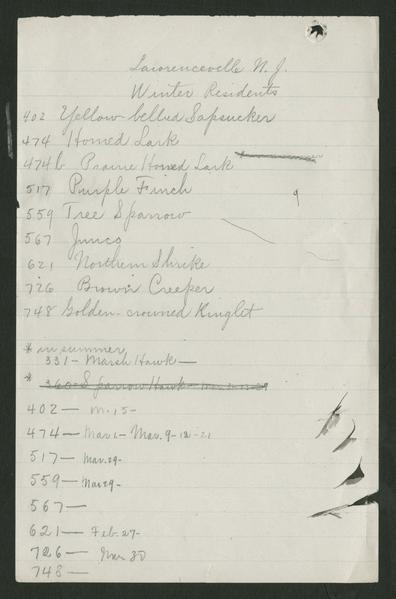 Lawrenceville N. J.
Winter Residents
402 Yellow-bellied Sapsucker
474 Horned Lark
474b Prairie Horned Lark
517 Purple Finch
559 Tree Sparrow
567 Junco
621 Northern Shrike
726 Brown Creeper
748 Golden-crowned Kinglet
* in summer
331- Marsh Hawk-
* 360- Sparrow Hawk-
402- m. 15-
474- Mar. 1- Mar. 9-12-21
517- Mar. 29-
559- Mar. 29-
567-
621- Feb. 27-
726- Mar 30
748-